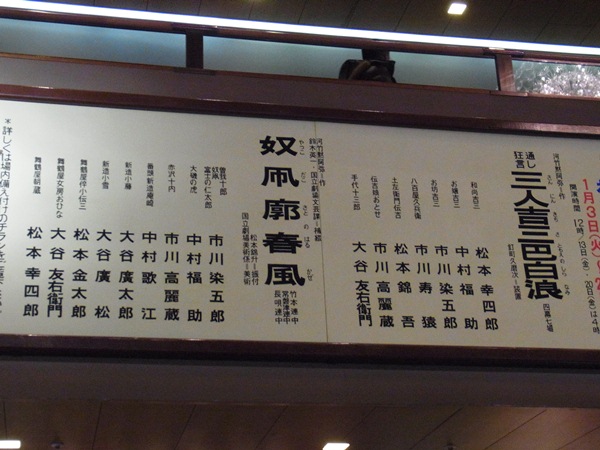 1月3日(火)
開演時間 12時 13日(金)、20日(金)は4時
河竹黙阿弥＝作
通し狂言 三人吉三巴白浪 四幕七場
さんにんきちさともえのしらなみ
釘町久磨次＝装置
和尚吉三 松本幸四郎
お嬢吉三 中村福助
お坊吉三 市川染五郎
八百屋久兵衛 市川寿猿
土左衛門伝吉 松本錦吾
伝吉娘おとせ 市川高麗蔵
手代十三郎 大谷友右衛門
河竹黙阿弥＝作
鈴木英一・国立劇場文芸課＝補綴
奴凧廓春風
やっこだこさとのはるかぜ
松本錦升＝振付
国立劇場美術係＝美術
竹本連中
常磐津連中
長唄連中
曽我十郎
奴凧
富士の仁太郎 市川染五郎
大磯の虎 中村福助
赤沢十内 市川高麗蔵
番頭新造 中村歌江
新造小藤 大谷廣太郎
新造小雪 大谷廣松
舞鶴屋倅小伝三 松本金太郎
舞鶴屋女房おひな 大谷友右衛門
舞鶴屋朝蔵 松本幸四郎
＊詳しくは場内備え付けのチラシを